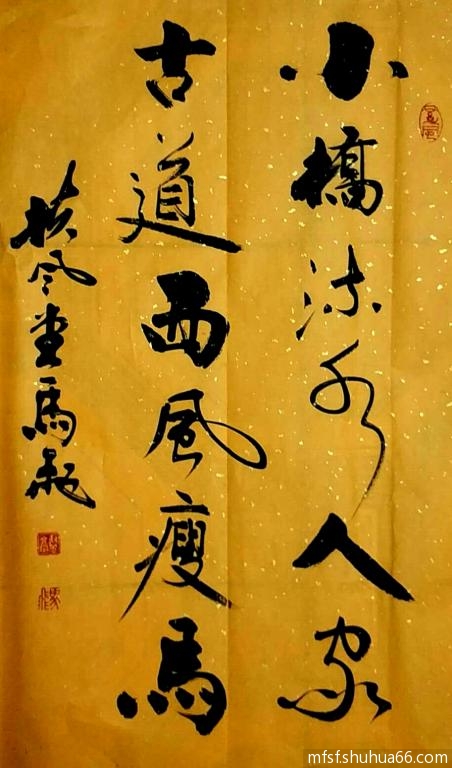 小橋流水人家
古道西風瘦馬
扶风堂馬
mfsf.shuhua66.com